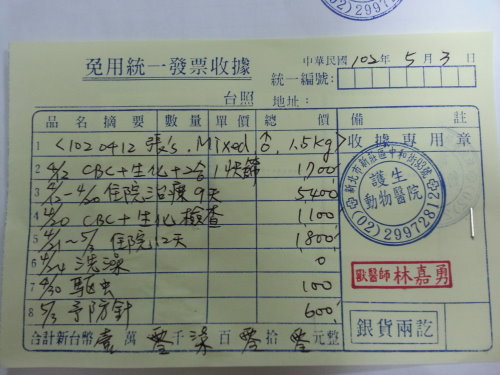 免用統一發票收據
中華民國 102年 5月 3日
統一編號:
台照 地址:
品名摘要 數量 單價 總價 備註
1 <1020412 張's. Mixed, ♂, 1.5kg> 收據專用章
2 4/12 CBC+生化+二合1快篩 1,700
3 4/12-4/20 住院治療9天 5,400
4 4/20 CBC+生化檢查 1,100
5 4/21~5/2 住院12天 1,800
6 4/24 洗澡 0
7 4/30 驅虫 100
8 5/3 予防針 600
合計新台幣壹萬零千柒百零拾零元整
銀貨兩訖
新北市新莊區中和街
護生
動物醫院
(02)29972812
獸醫師 林嘉勇